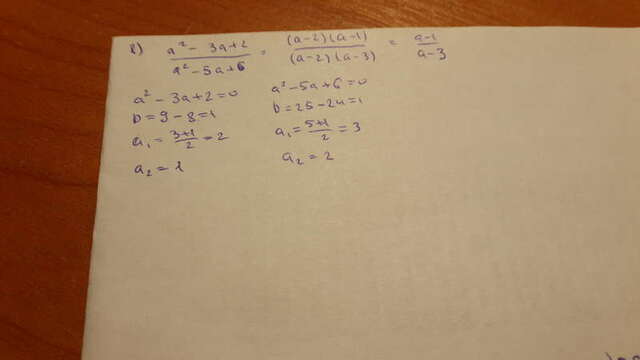 в) a² - 3a + 2 / a² - 5a + 6 = (a-2)(a-1) / (a-2)(a-3) = a-1 / a-3
a² - 3a + 2 = 0
D = 9 - 8 = 1
a₁ = 3+1 / 2 = 2
a₂ = 1
a² - 5a + 6 = 0
D = 25 - 24 = 1
a₁ = 5+1 / 2 = 3
a₂ = 2